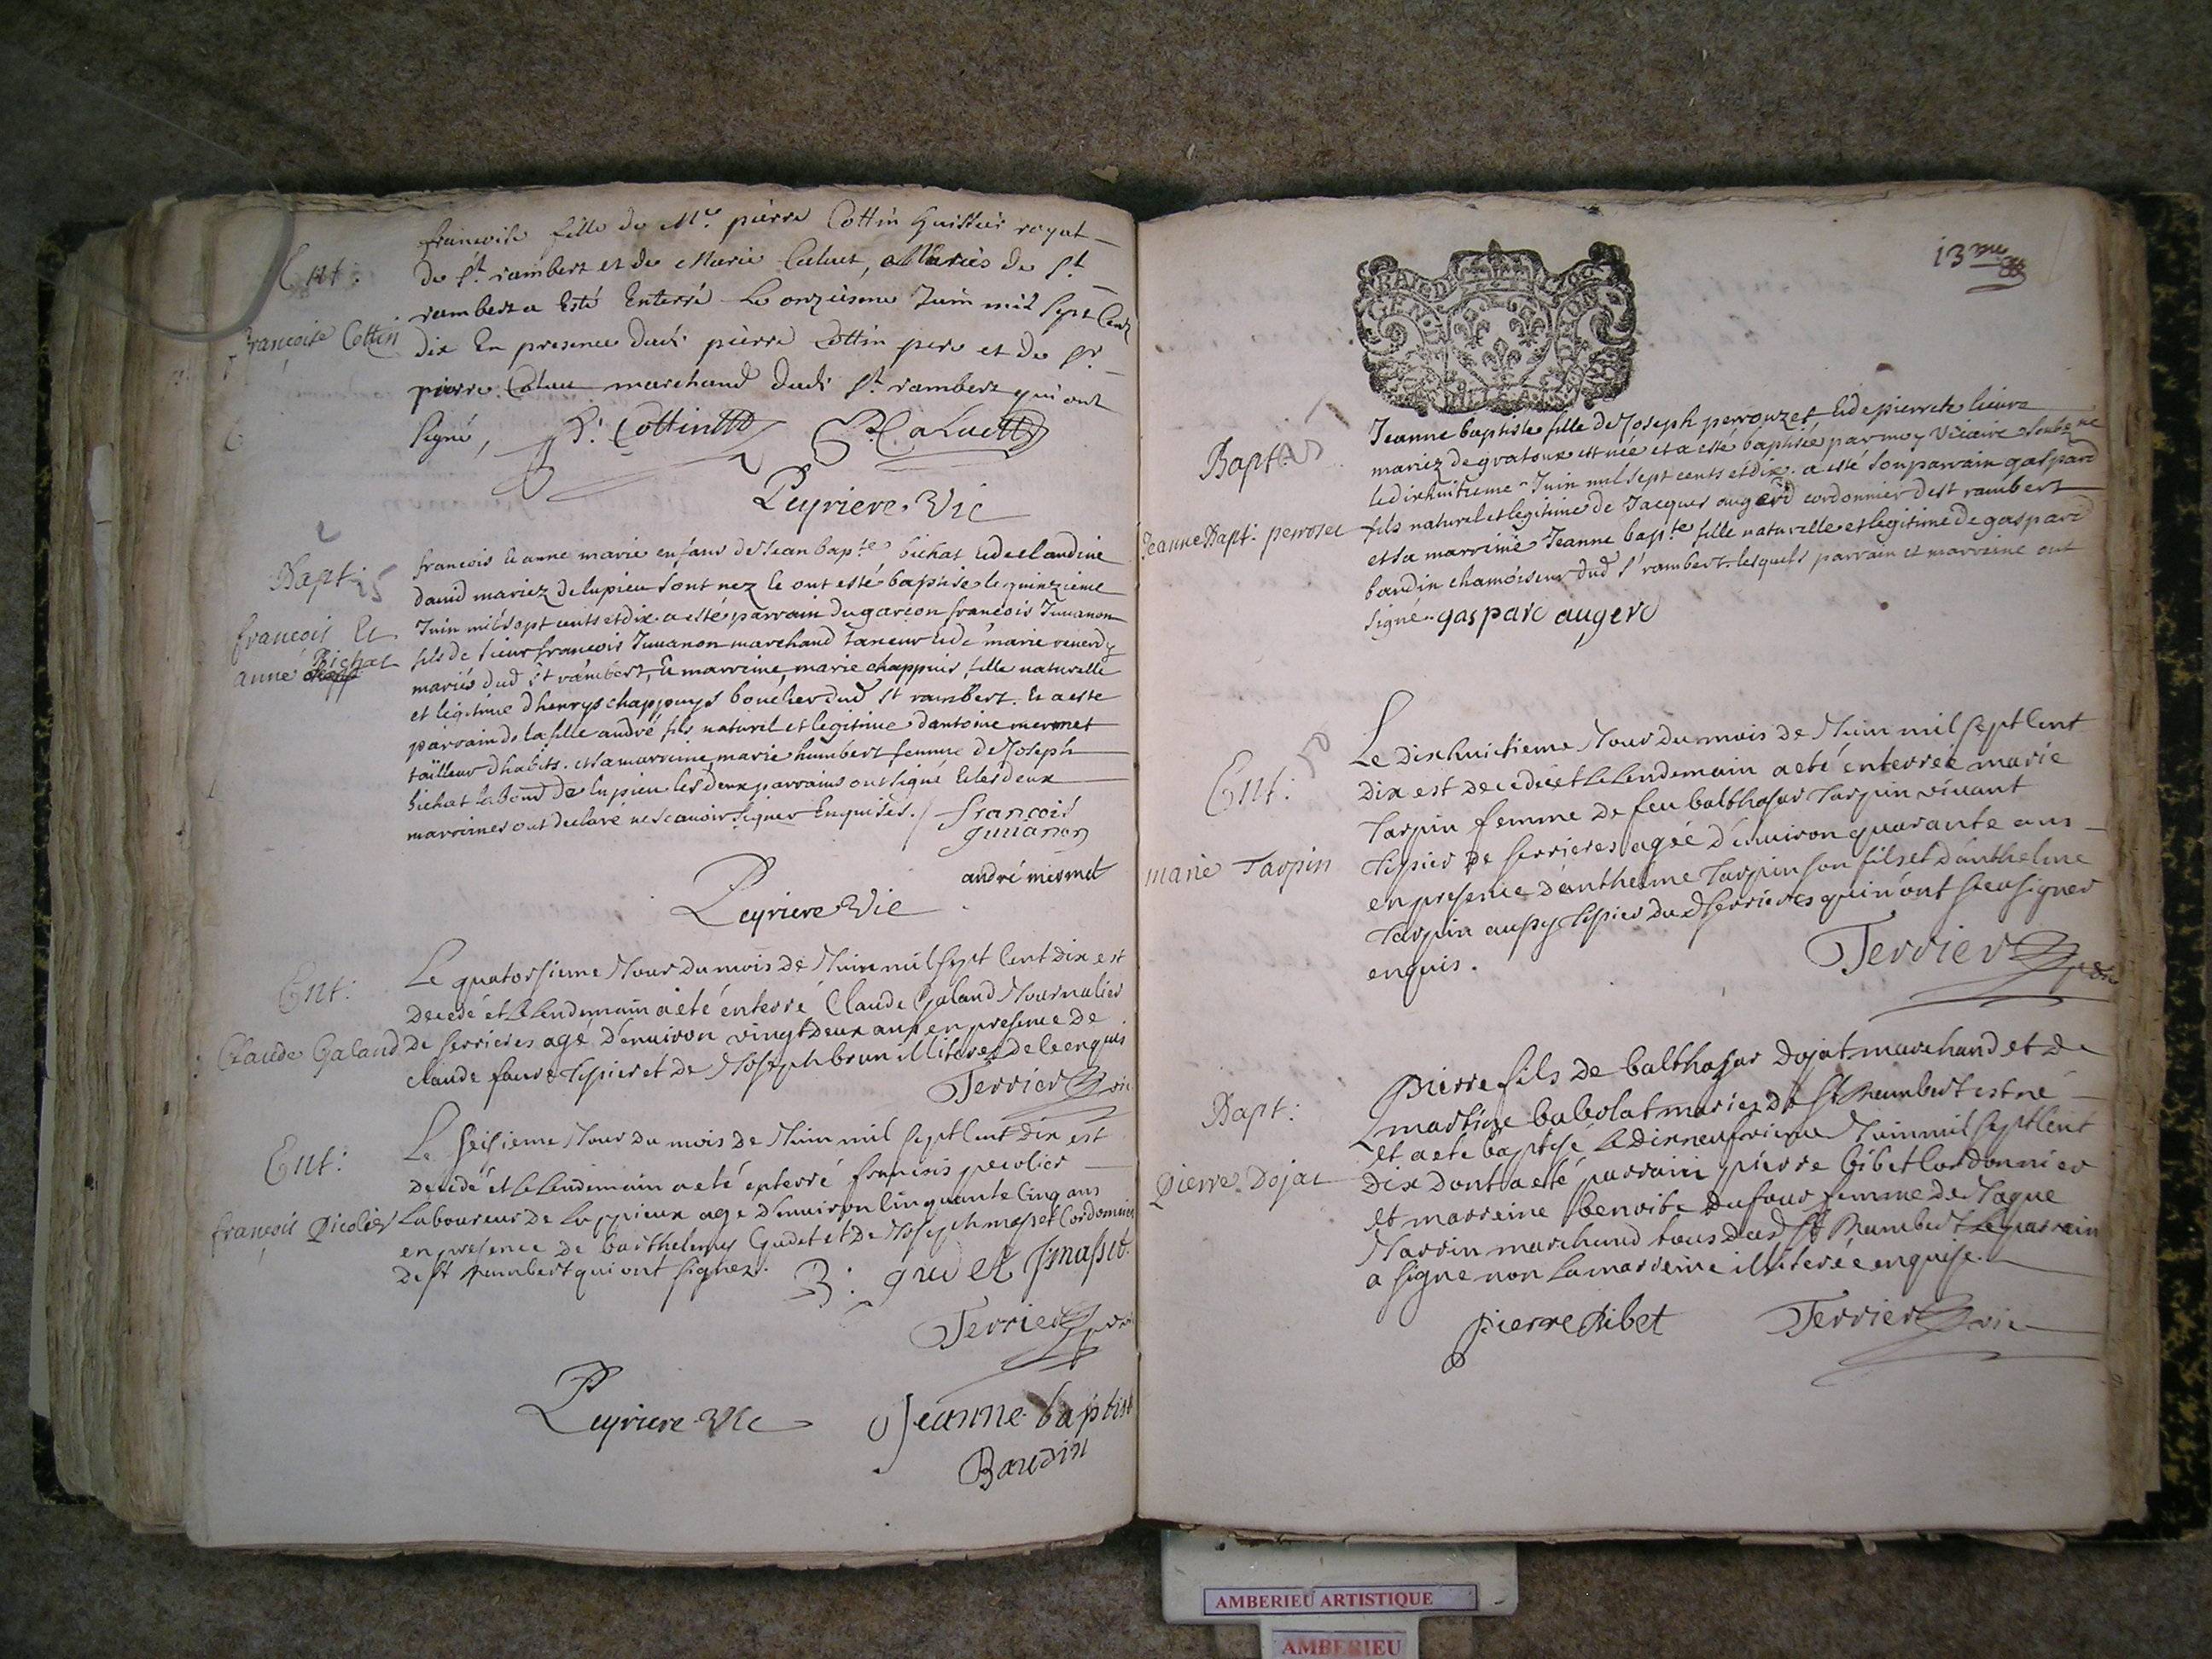 Ent:
Françoise Cottin
francoise fille de Mre pierre Cottin huissier royal
de St rambert et de Marie Caluet, Mariés de St
rambert a Esté Enterré Le onziesme Juin mil Sept Centz
dix En presence dudi pierre Cottin pere et de Sr
pierre Caluet marchand dudi St rambert qui ont
signé, P. Cottin Caluett
Peyriere Vic
Bapt:
francois Et
anne Bichat
francois Et anne marie enfans de Jean bapte bichat Et de claudine
dauid mariez de lupieu sont nez Et ont esté baptisé le quinzieme
Juin mil sept cents et dix. a esté parrain du garcon francois Juuanon
fils de sieur francois Juuanon marchand taneur Et de marie reuerdy
mariés dud St rambert, Et marrine, marie chappuis fille naturelle
et legitime d'henrys chappuys boucher dud St rambert. Et a este
parrain de la fille andré fils naturel et legitime d'antoine mermet
tailleur d'habits. et sa marrine marie humbert femme de Joseph
bichat de lupieu les deux parrains ont signé Et les deux
marrines ont declaré ne scauoir signer Enquises. / francois
Juuanon
andré mermet
Peyriere Vic
Ent:
Claude Galand
Le quatorsieme Jour du mois de Juin mil sept Cent dix est
decedé et Le Lendemain a eté enterré Claude Galand Journalier
de serrieres agé d'enuiron vingt deux ans en presence de
claude faure tipier et de Joseph brun illiterez de ce enquis
Terrier vic
Ent:
françois Picolier
Le seisieme Jour du mois de Juin mil sept Cent dix est
decedé et Le Lendemain a eté enterré francois pecolier
Laboureur de Luppieux agé d'enuiron Cinquante Cinq ans
en presence de barthelemy Gudet et de Joseph masset Cordonnier
de St Rambert qui ont signez. B: gudet J masset
Terrier vic
Peyriere Vic Jeanne baptist
Baudin
13me
GEN
Bapt:
Jeanne Bapt: perroset
Jeanne baptiste fille de Joseph perrouzet Et de pierrete lieure
mariez de gratoux est née et a esté baptisée par moy Vicaire soubzne
le dixhuitieme Juin mil sept cents et dix. a esté son parrain gaspard
fils naturel et legitime de Jacques augerd cordonnier de st rambert
et sa marrine Jeanne bapte fille naturelle et legitime de gaspard
baudin chamoiseur dud St rambert. lesquels parrain et marraine ont
signé. gaspard augerd
Ent:
marie Tarpin
Le dixhuictieme Jour du mois de Juin mil sept Cent
dix est decedée et Le Lendemain a eté enterrée marie
Tarpin femme de feu balthasar Tarpin viuant
tipier de serrieres agée d'enuiron quarante ans
en presence d'anthelme Tarpin son fils et d'anthelme
Tarpin aussy tipier dud serrieres qui n'ont sceu signer
enquis.
Terrier vic
Bapt:
Pierre Dojat
Pierre fils de balthasar Dojat marchand et de
martine babolat mariez de St Rambert est né
et a eté baptisé Le dixneufvieme Juin mil sept Cent
dix dont a eté parrain pierre bibet Cordonnier
et marreine benoite Dufour femme de Jaque
Jarrin marchand tous dud St Rambert Le parrain
a signé non La marreine illiterée enquise.
pierre Bibet Terrier vic
AMBERIEU ARTISTIQUE
AMBERIEU